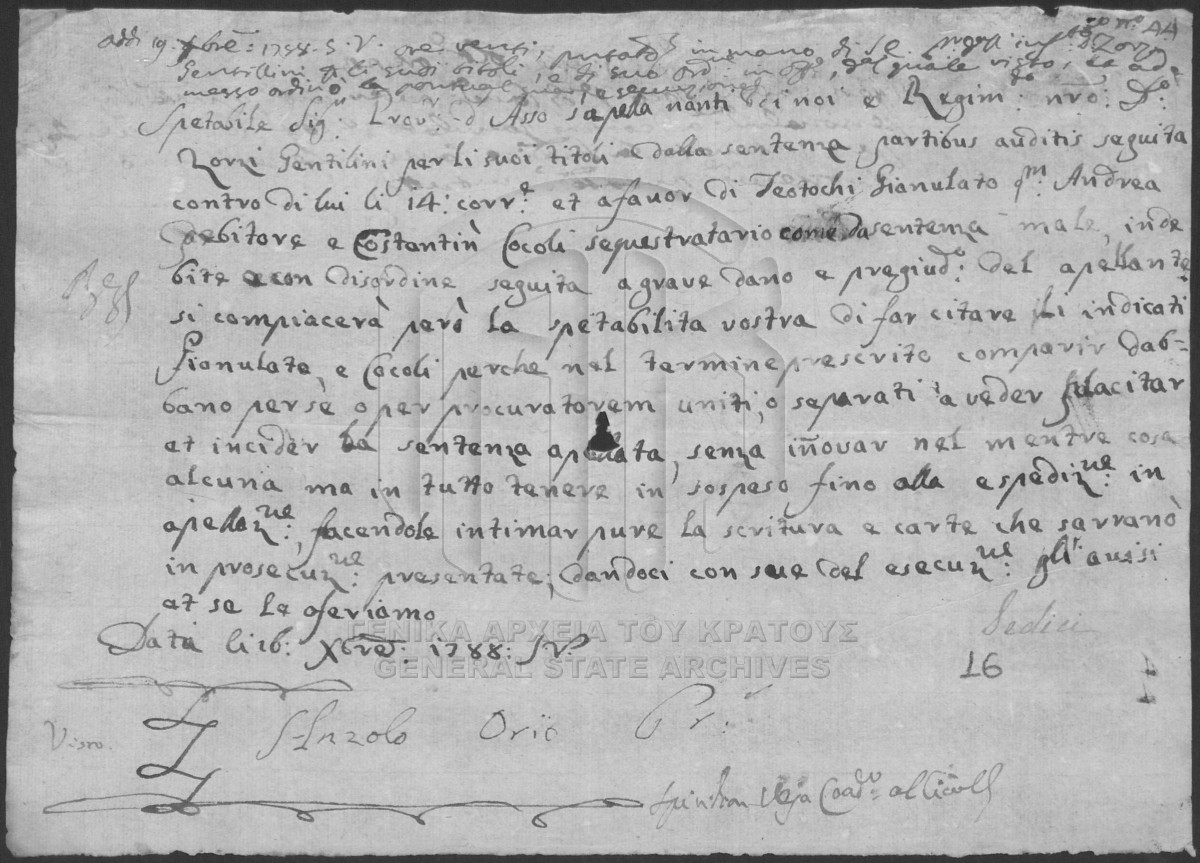 addi 19 Xbre: 1788 S. V. ore venti, in mano di Se.
Gentillini li suoi titoli, e di suo del quale visto, la ad
messo ordinò
Spetabile Sigr: Prov: d'Asso s'apella nanti di noi e Regim:to nro: Dr:
Zorzi Gentilini per li suoi titoli e dalla sentenza partibus auditis seguita
contro di lui li 14: corr:e et a favor di Teotochi Gianulato qm: Andrea
debitore e Costantin Cocoli sequestratario come da sentenza male, inde
bite e con disordine seguita a grave dano e pregiud:o del apellante
si compiacerà però la spetabilita vostra di far citare li indicati
Gianulato, e Cocoli perche nel termine prescrito comparir dab-
bano per sè o per procuratorem uniti, o separati a veder
et incider la sentenza apellata, senza iñovar nel mentre cosa
alcuna ma in tutto tenere in sospeso fino alla espediz:ne in
apellaz:ne, facendole intimar pure la scritura e carte che sarranò
in prosecuz:ne presentate, dandoci con sue del esecuz:ne gl'avisi
et se le oferiamo
Data li 16: Xbre: 1788: SV:
Sedici
16
44
Visto.
Anzolo Orio Pr:
Spiridion Coad:
ΓΕΝΙΚΑ ΑΡΧΕΙΑ ΤΟΥ ΚΡΑΤΟΥΣ
GENERAL STATE ARCHIVES